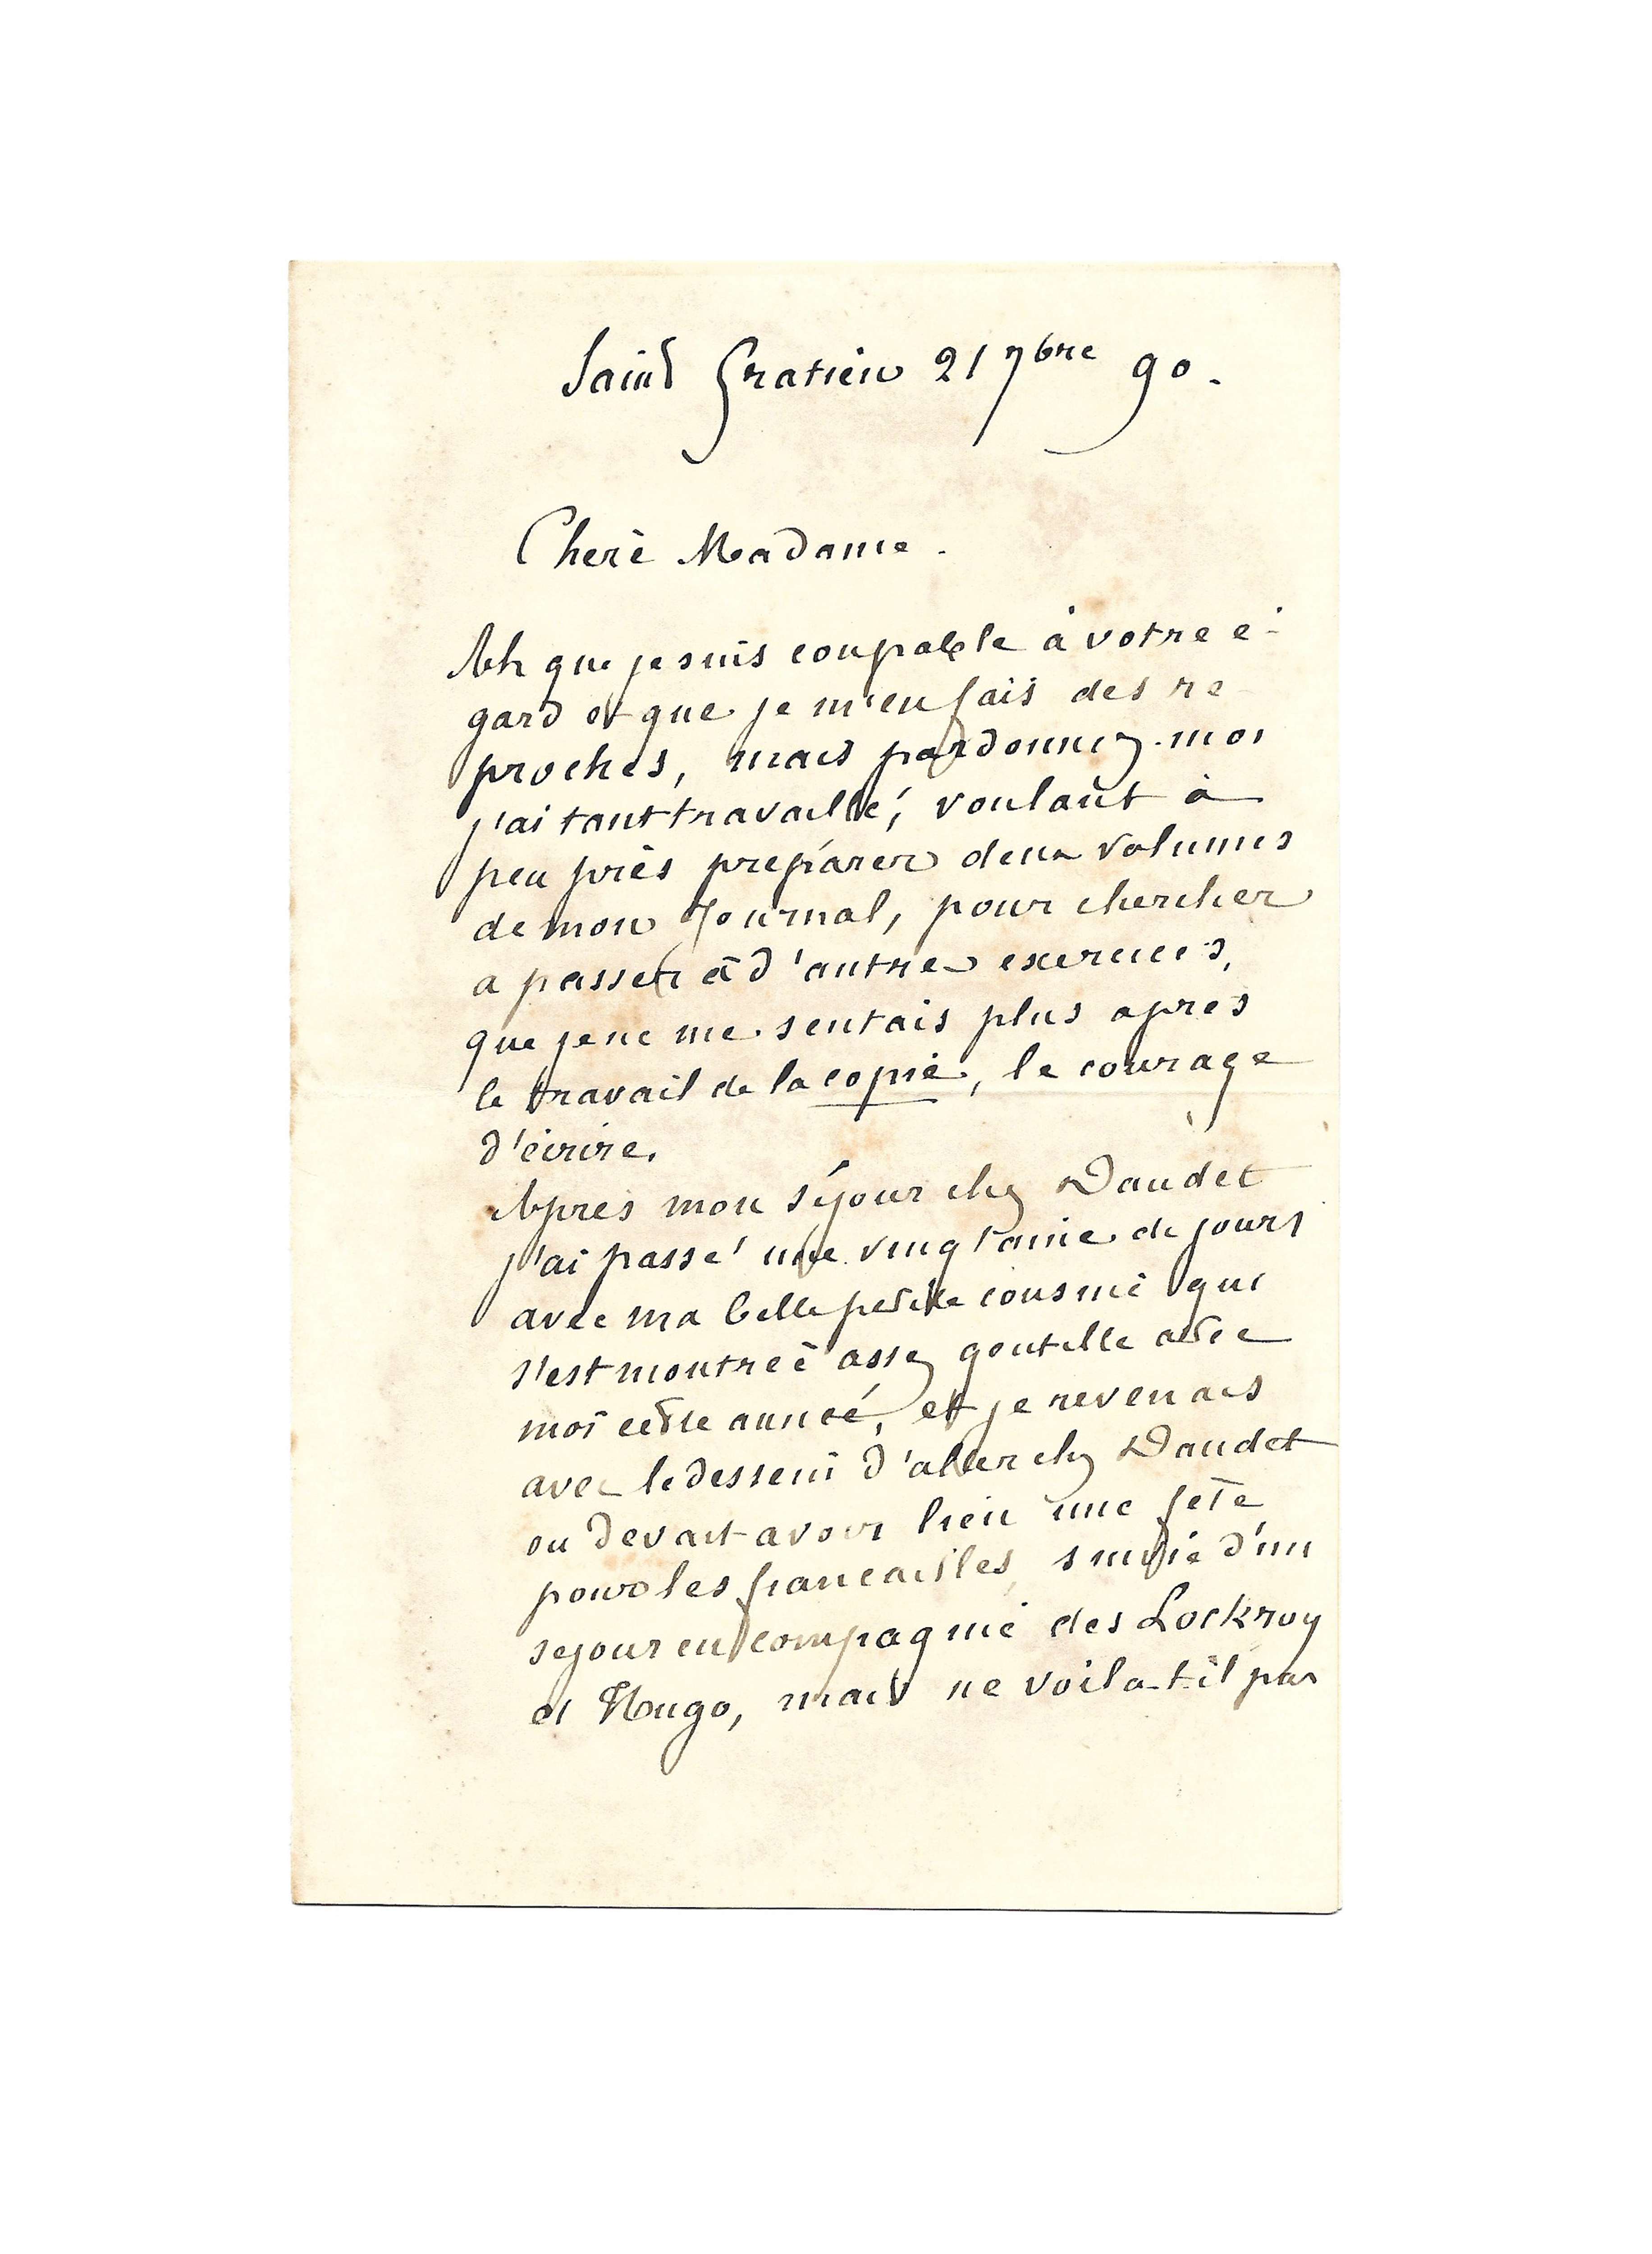 Saint Gratien 21 7bre 90.
Cherè Madame.
Ah que je suis coupable à votre é-
gard et que je m'en fais des re-
proches, mais pardonnez-moi
j'ai tant travaillé, voulant à
peu près préparer deux volumes
de mon Journal, pour chercher
a passer à d'autres exercices,
que je ne me sentais plus apres
le travail de la copie, le courage
d'écrire.
Apres mon séjour chez Daudet
j'ai passé une vingtaine de jours
avec ma belle petite cousine qui
s'est montreé assez gentille avec
moi cette anneé, et je revenais
avec le dessein d'aller chez Daudet
ou devait avoir lieu une fête
pour les fiancailles, suivie d'un
sejour en compagnie des Lockroy
et Hugo, mais ne voila-t-il pas